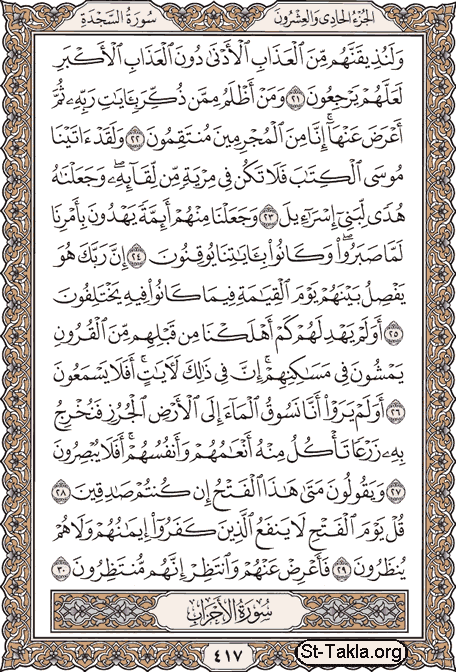 الجزء الحادى والعشرون سورة السجدة
وَلَنُذِيقَنَّهُم مِّنَ ٱلْعَذَابِ ٱلْأَدْنَىٰ دُونَ ٱلْعَذَابِ ٱلْأَكْبَرِ
لَعَلَّهُمْ يَرْجِعُونَ ٢١ وَمَنْ أَظْلَمُ مِمَّن ذُكِّرَ بِـَٔايَـٰتِ رَبِّهِۦ ثُمَّ
أَعْرَضَ عَنْهَآ ۚ إِنَّا مِنَ ٱلْمُجْرِمِينَ مُنتَقِمُونَ ٢٢ وَلَقَدْ ءَاتَيْنَا
مُوسَى ٱلْكِتَـٰبَ فَلَا تَكُن فِى مِرْيَةٍ مِّن لِّقَآئِهِۦ ۖ وَجَعَلْنَـٰهُ
هُدًى لِّبَنِىٓ إِسْرَٰٓءِيلَ ٢٣ وَجَعَلْنَا مِنْهُمْ أَئِمَّةً يَهْدُونَ بِأَمْرِنَا
لَمَّا صَبَرُوا۟ ۖ وَكَانُوا۟ بِـَٔايَـٰتِنَا يُوقِنُونَ ٢٤ إِنَّ رَبَّكَ هُوَ
يَفْصِلُ بَيْنَهُمْ يَوْمَ ٱلْقِيَـٰمَةِ فِيمَا كَانُوا۟ فِيهِ يَخْتَلِفُونَ
٢٥ أَوَلَمْ يَهْدِ لَهُمْ كَمْ أَهْلَكْنَا مِن قَبْلِهِم مِّنَ ٱلْقُرُونِ
يَمْشُونَ فِى مَسَـٰكِنِهِمْ ۚ إِنَّ فِى ذَٰلِكَ لَـَٔايَـٰتٍ ۖ أَفَلَا يَسْمَعُونَ
٢٦ أَوَلَمْ يَرَوْا۟ أَنَّا نَسُوقُ ٱلْمَآءَ إِلَى ٱلْأَرْضِ ٱلْجُرُزِ فَنُخْرِجُ
بِهِۦ زَرْعًا تَأْكُلُ مِنْهُ أَنْعَـٰمُهُمْ وَأَنفُسُهُمْ ۖ أَفَلَا يُبْصِرُونَ
٢٧ وَيَقُولُونَ مَتَىٰ هَـٰذَا ٱلْفَتْحُ إِن كُنتُمْ صَـٰدِقِينَ ٢٨
قُلْ يَوْمَ ٱلْفَتْحِ لَا يَنفَعُ ٱلَّذِينَ كَفَرُوٓا۟ إِيمَـٰنُهُمْ وَلَا هُمْ
يُنظَرُونَ ٢٩ فَأَعْرِضْ عَنْهُمْ وَٱنتَظِرْ إِنَّهُم مُّنتَظِرُونَ ٣٠
سورة الأحزاب
٤١٧
St-Takla.org